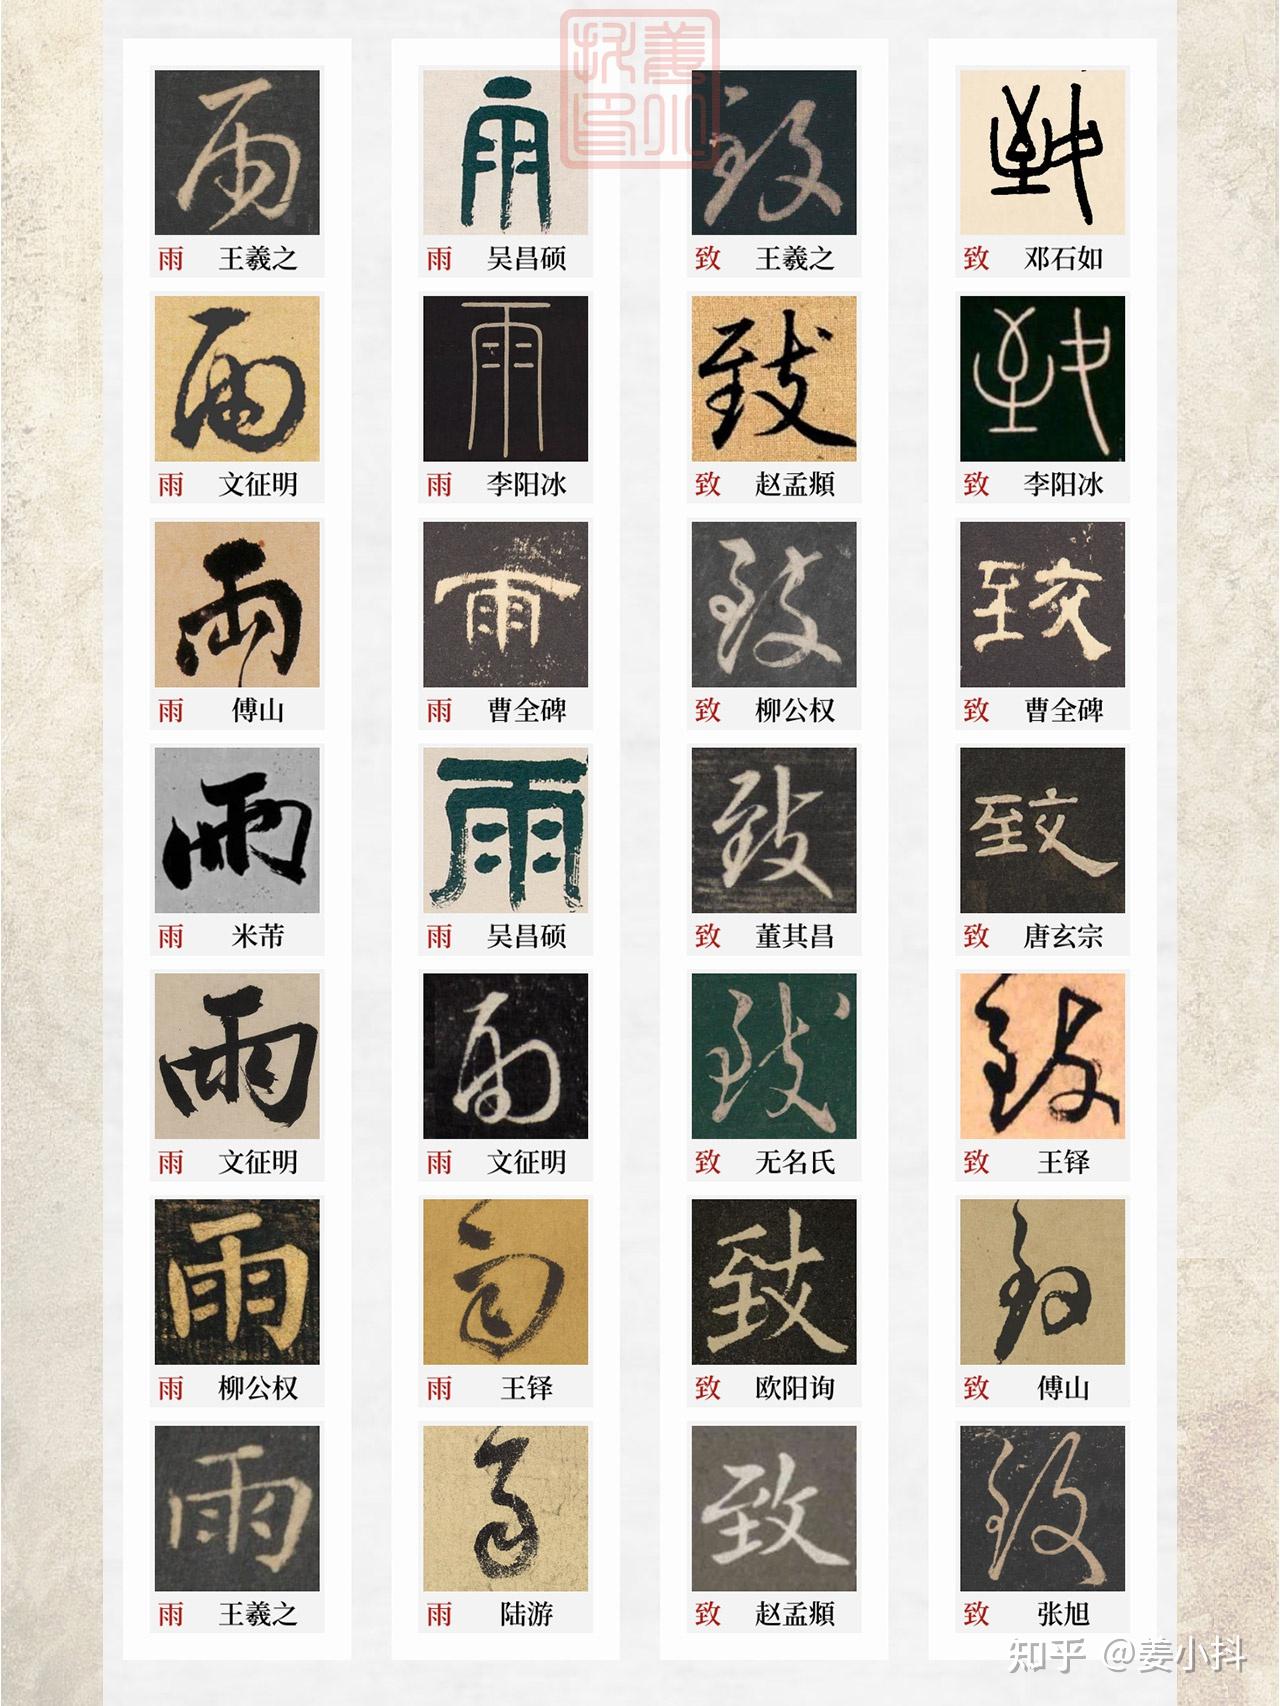 姜小抖印
雨 王羲之
雨 吴昌硕
致 王羲之
致 邓石如
雨 文征明
雨 李阳冰
致 赵孟頫
致 李阳冰
雨 傅山
雨 曹全碑
致 柳公权
致 曹全碑
雨 米芾
雨 吴昌硕
致 董其昌
致 唐玄宗
雨 文征明
雨 文征明
致 无名氏
致 王铎
雨 柳公权
雨 王铎
致 欧阳询
致 傅山
雨 王羲之
雨 陆游
致 赵孟頫
致 张旭
知乎 @姜小抖